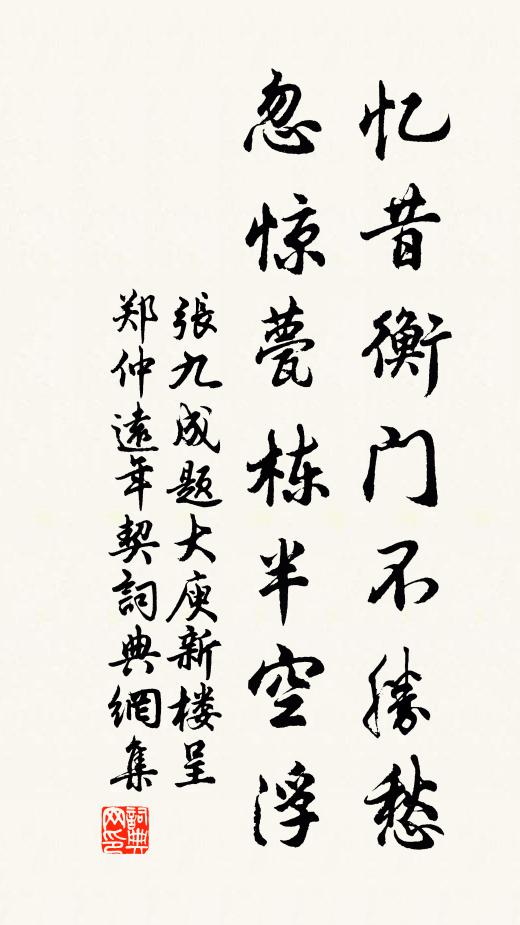 忆昔衡门不勝愁
忽惊甍栋半空浮
張九成题大庾新楼呈
郑仲遠年契詞典網集
詞典
网印